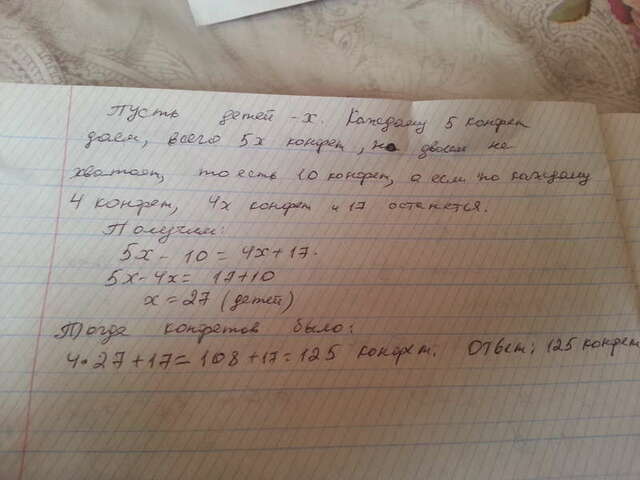 Пусть детей - x. Каждому 5 конфет
даем, всего 5x конфет, но двоим не
хватает, то есть 10 конфет, а если по каждому
4 конфет, 4x конфет и 17 останется.
Получим:
5x - 10 = 4x + 17.
5x - 4x = 17 + 10
x = 27 (детей)
Тогда конфетов было:
4 • 27 + 17 = 108 + 17 = 125 конфет. Ответ: 125 конфет